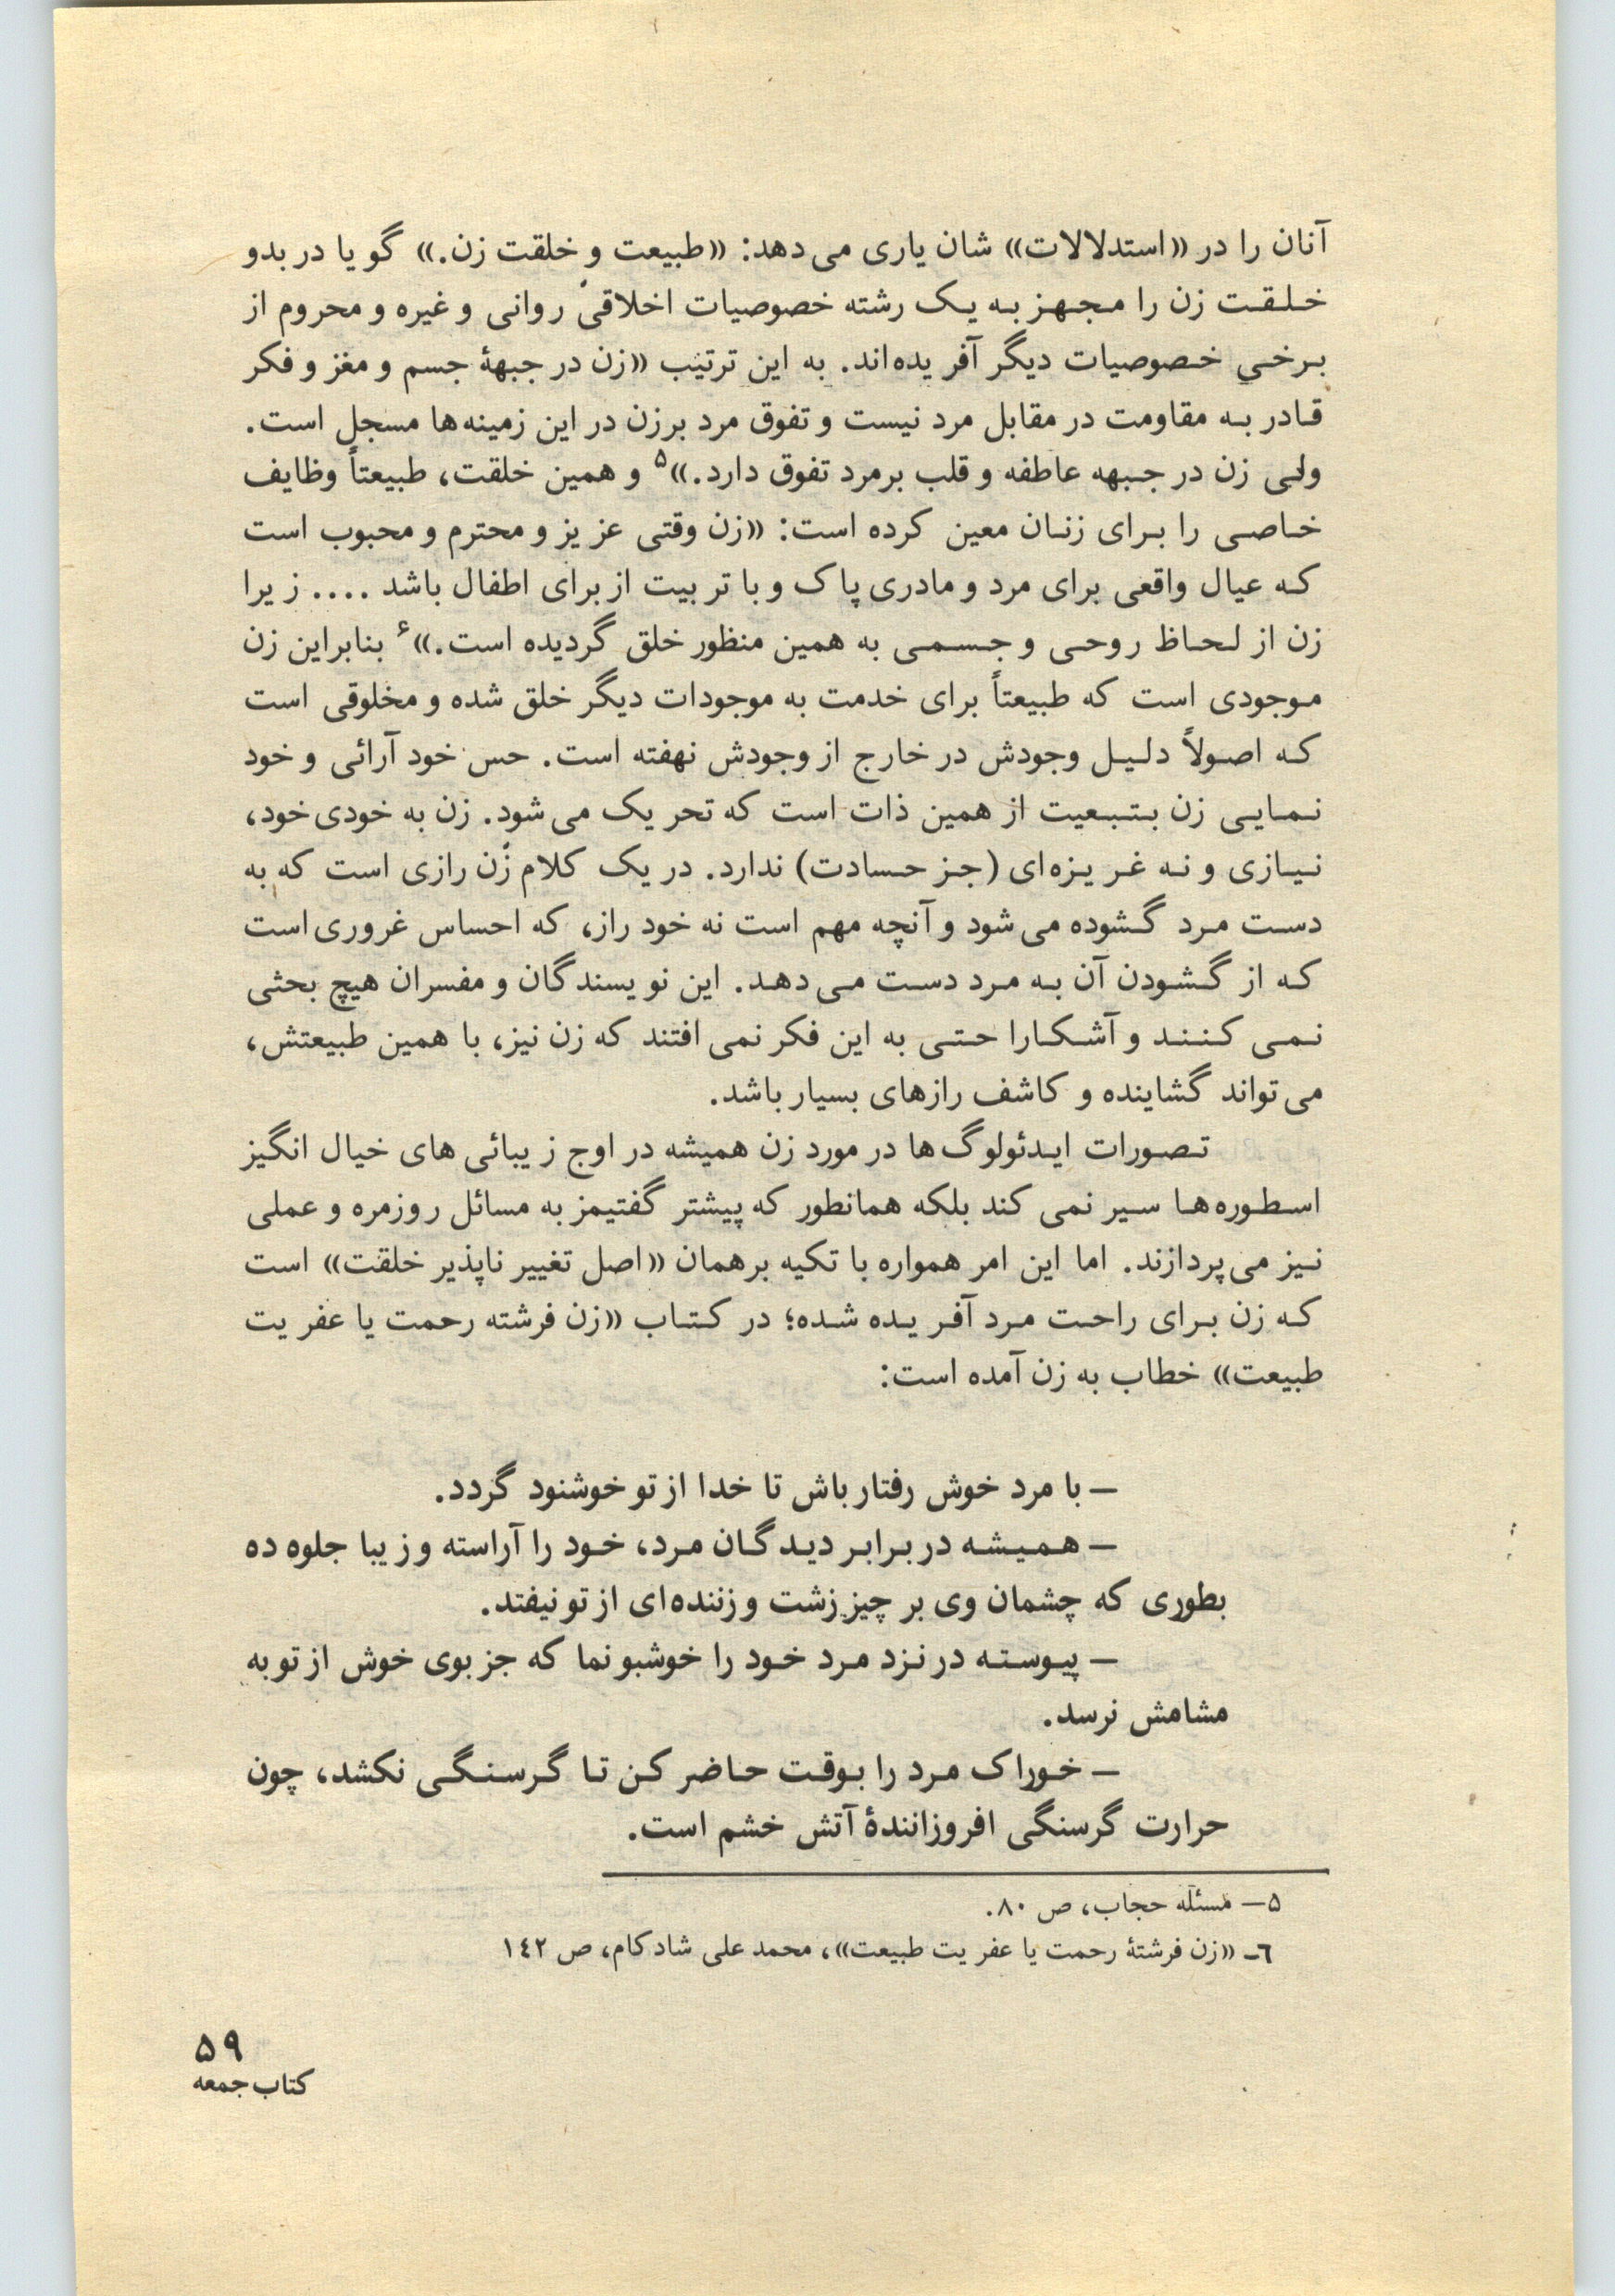 آنان را در «استدلالات» شان یاری می‌دهد: «طبیعت و خلقت زن.» گویا در بدو
خلقت زن را مجهز به یک رشته خصوصیات اخلاقی روانی و غیره و محروم از
برخی خصوصیات دیگر آفریده‌اند. به این ترتیب «زن در جبههٔ جسم و مغز و فکر
قادر به مقاومت در مقابل مرد نیست و تفوق مرد برزن در این زمینه‌ها مسجل است.
ولی زن در جبهه عاطفه و قلب برمرد تفوق دارد.»۵ و همین خلقت، طبیعتاً وظایف
خاصی را برای زنان معین کرده است: «زن وقتی عزیز و محترم و محبوب است
که عیال واقعی برای مرد و مادری پاک و با تربیت از برای اطفال باشد .... زیرا
زن از لحاظ روحی و جسمی به همین منظور خلق گردیده است.»۶ بنابراین زن
موجودی است که طبیعتاً برای خدمت به موجودات دیگر خلق شده و مخلوقی است
که اصولاً دلیل وجودش در خارج از وجودش نهفته است. حس خود آرائی و خود
نمایی زن بتبعیت از همین ذات است که تحریک می‌شود. زن به خودی خود،
نیازی و نه غریزه‌ای (جز حسادت) ندارد. در یک کلام زن رازی است که به
دست مرد گشوده می‌شود و آنچه مهم است نه خود راز، که احساس غروری است
که از گشودن آن به مرد دست می‌دهد. این نویسندگان و مفسران هیچ بحثی
نمی کنند و آشکارا حتی به این فکر نمی افتند که زن نیز، با همین طبیعتش،
می‌تواند گشاینده و کاشف رازهای بسیار باشد.
تصورات ایدئولوگ‌ها در مورد زن همیشه در اوج زیبائی های خیال انگیز
اسطوره‌ها سیر نمی کند بلکه همانطور که پیشتر گفتیمز به مسائل روزمره و عملی
نیز می‌پردازند. اما این امر همواره با تکیه برهمان «اصل تغییر ناپذیر خلقت» است
که زن برای راحت مرد آفریده شده؛ در کتاب «زن فرشته رحمت یا عفریت
طبیعت» خطاب به زن آمده است:
– با مرد خوش رفتار باش تا خدا از تو خوشنود گردد.
– همیشه در برابر دیدگان مرد، خود را آراسته و زیبا جلوه ده
بطوری که چشمان وی بر چیز زشت و زننده‌ای از تو نیفتد.
– پیوسته در نزد مرد خود را خوشبو نما که جز بوی خوش از تو به
مشامش نرسد.
– خوراک مرد را بوقت حاضر کن تا گرسنگی نکشد، چون
حرارت گرسنگی افروزانندهٔ آتش خشم است.
۵– مسئله حجاب، ص ۸۰.
٦– «زن فرشتهٔ رحمت یا عفریت طبیعت»، محمد علی شادکام، ص ١٤٢
۵۹
کتاب جمعه